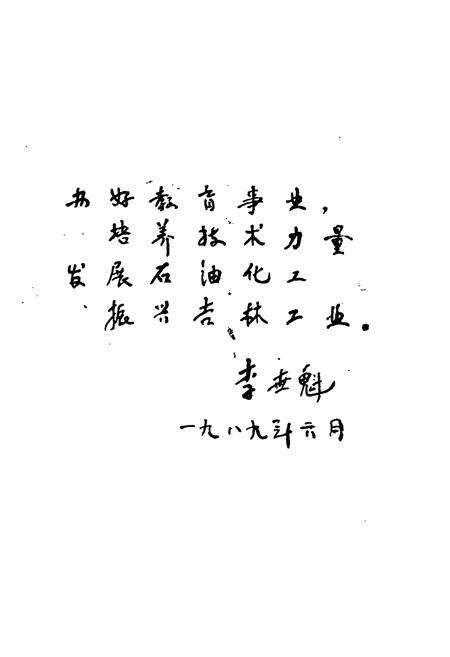 办好教育事业，
培养技术力量
发展石油化工
振兴吉林工业。
李世魁
一九八九年六月